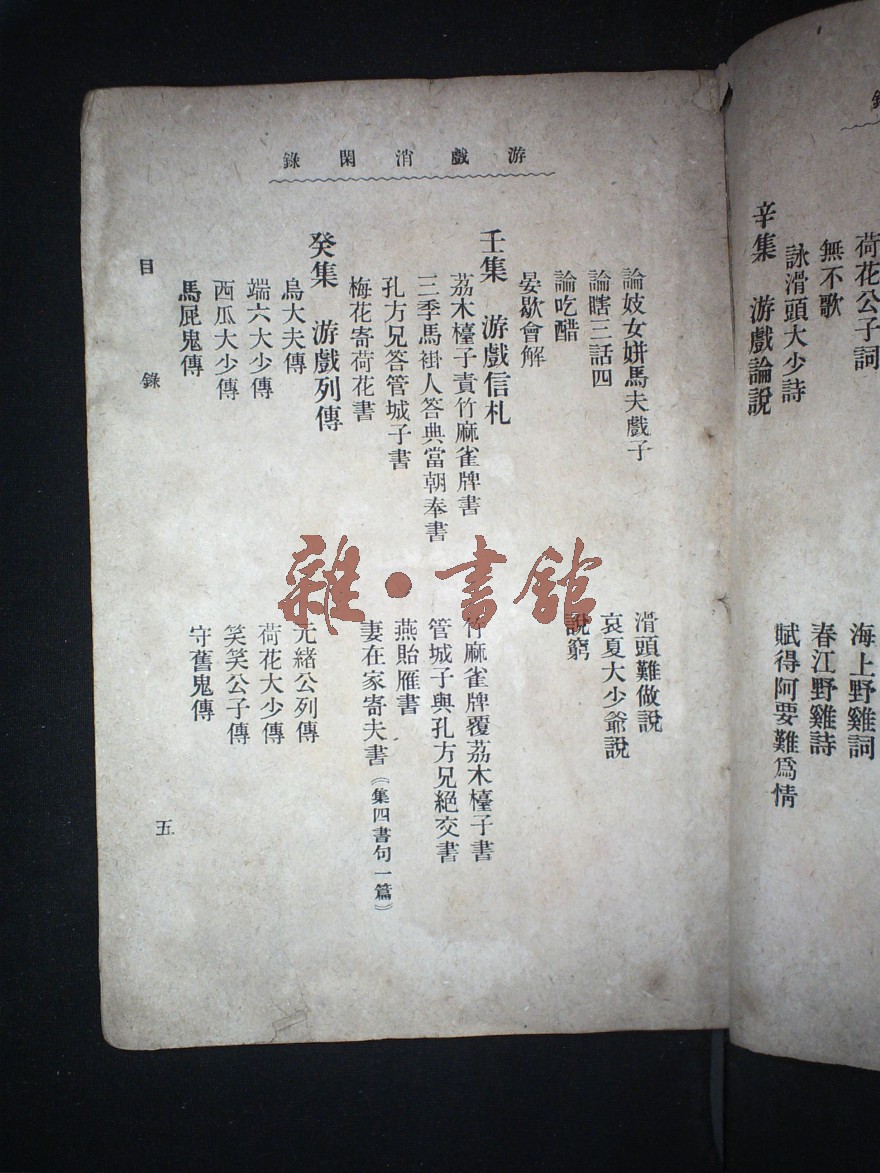 荷花公子詞
海上野雞詞
無不歌
春江野雞詩
詠滑頭大少詩
賦得阿要難爲情
辛集　游戲論說
游戲消閑錄
論妓女姘馬夫戲子
滑頭難做說
論瞎三話四
哀夏大少爺說
論吃醋
說窮
晏歇會解
壬集　游戲信札
荔木檯子責竹麻雀牌書
竹麻雀牌覆荔木檯子書
三季馬褂人答典當朝奉書
管城子與孔方兄絕交書
孔方兄答管城子書
燕貽雁書
梅花寄荷花書
妻在家寄夫書（集四書句一篇）
癸集　游戲列傳
烏大夫傳
元緒公列傳
端六大少傳
荷花大少傳
西瓜大少傳
笑笑公子傳
馬屁鬼傳
守舊鬼傳
目錄
五
雜·書館